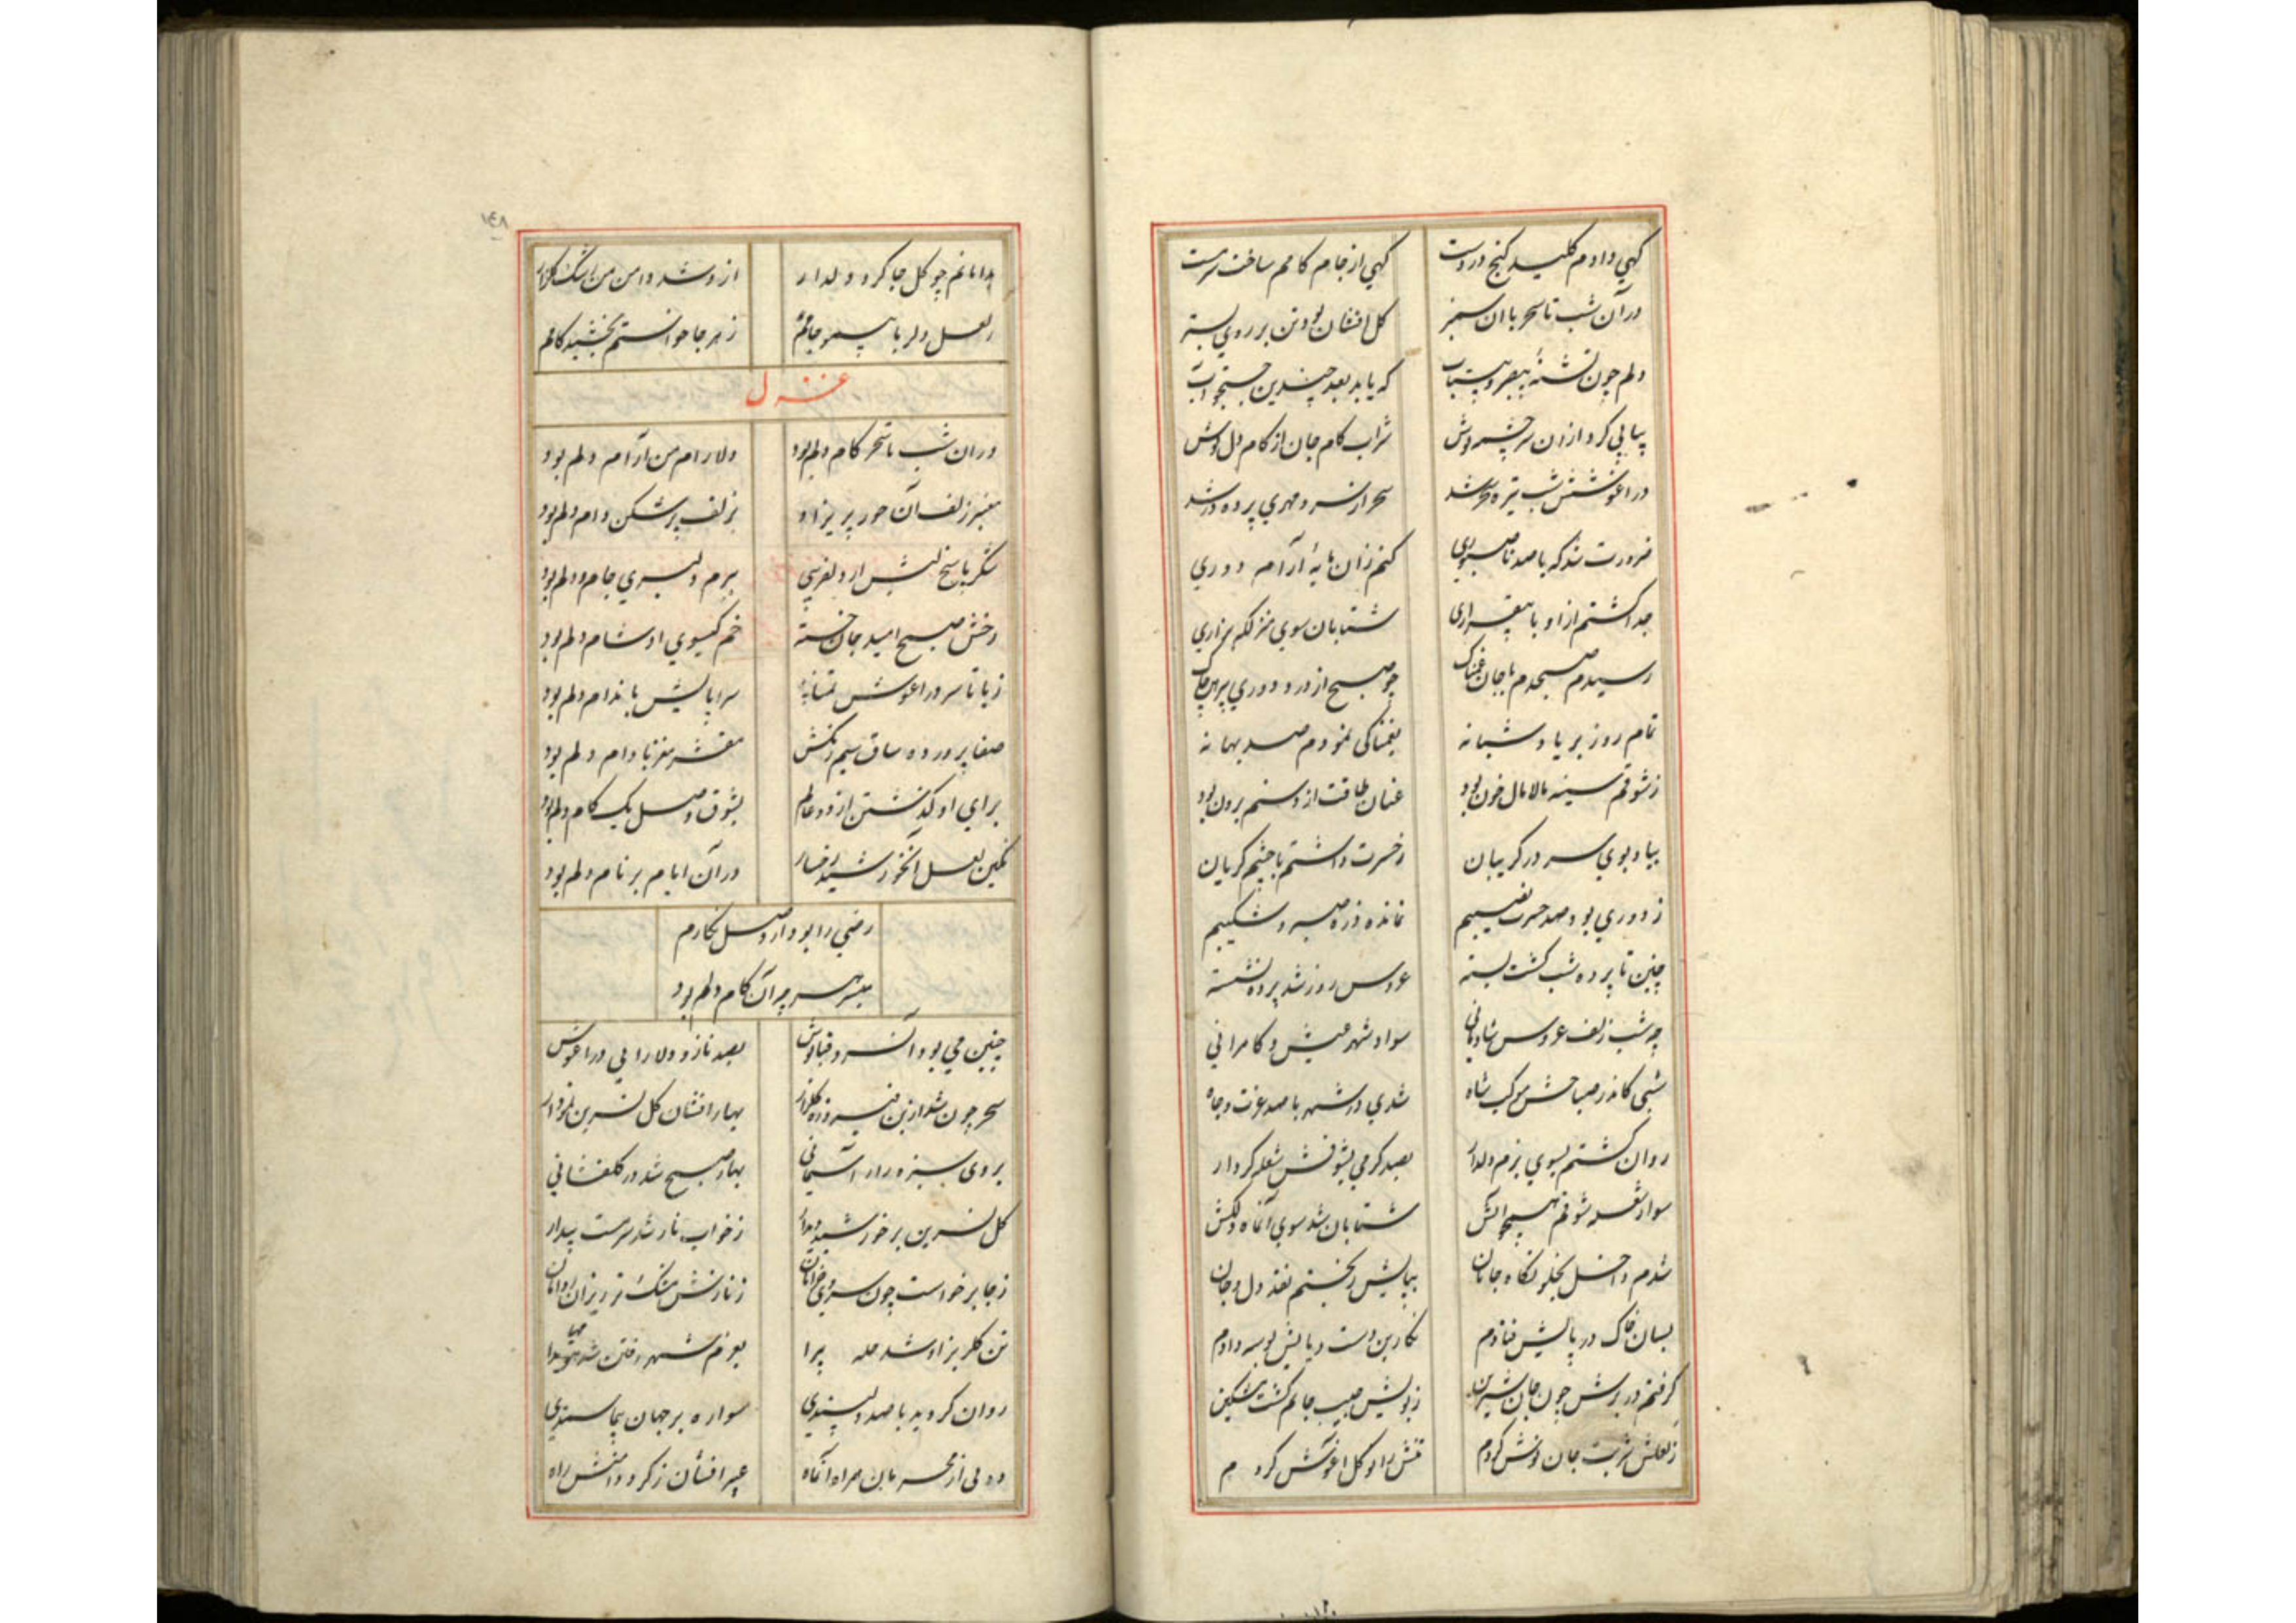 کهی دادم کلید کنج در دست کهی از جام کامم ساخت سرمست
در آن شب تا سحر با آن سمنبر کل افشان بودتن بر روی بستر
دلم چون تشنهٔ بیصبر و بیتاب که یابد بعد چندین جستجو آب
پیاپی کرد از آن سرچشمه نوش شراب کام جان از کام دل نوش
در اغوشش شب تیره سحر شد سحر از سرد مهری پرده در شد
ضرورت شد که با صد ناصبوری کنم زان مایهٔ آرام دوری
جدا کشتم از او با بیقراری شتابان سوی منزلکه بزاری
رسیدم صبحدم با جان غمناک چو صبح از درد دوری پیرهن چاک
تمام روز بر یاد شبانه بغمناکی نمودم صد بهانه
ز شوقم سینه مالامال خون بود عنان طاقت از دستم برون بود
بیاد بوی سر در کریبان ز حسرت داشتم با چشم کریان
ز دوری بود صد حسرت نصیبم نمانده ذره صبر و شکیبم
چنین تا پرده شب کشت بسته عروس روز شد پرده نشسته
چه شب زلف عروس شادمانی سواد شهر عیش و کامرانی
شبی کاندر صباحش موکب شاه شدی در شهر با صد عزت و جاه
روان کشتم بسوی بزم دلدار بصد کرمی بشوقش شعله کردار
سوار شعله شوقم همچو آتش شتابان شد سوی آنماه دلکش
شدم داخل بخلوتکاه جانان بپایش ریختم نقد دل و جان
بسان خاک در پایش فتادم نکارین دست و پایش بوسه دادم
کرفتم در برش چون جان شیرین ز بویش جیب جانم کشت مشکین
ز لعلش شربت جان نوش کردم تنش را کل اغوش کردم
۱۴۸
بدامانم چو کل جا کرد دلدار از و شد دامن من رشک کلزار
ز لعل دلربا پیمود جامم ز هر جا خواستم بخشید کامم
غزل
در ان شب تا سحر کام دلم بود دلارام من آرام دلم بود
معنبر زلف آن حور پریزاد بزلف پر شکن دام دلم بود
شکر پاسخ لبش از دلفریبی ببزم دلبری جام دلم بود
رخش صبح امید جان خسته خم کیسوی او شام دلم بود
ز پا تا سر در اغوش تمنا سراپایش باندام دلم بود
صفا پرورده ساق سیم رنکش مقشر مغز بادام دلم بود
برای او کذشتن از دو عالم بشوق وصل یک کام دلم بود
نکین لعل آنخورشید رخسار در آن ایام بر نام دلم بود
رضی را بود از وصل نکارم
میسر هر چه آن کام دلم بود
چنین می بود آن سرو قباپوش بصد ناز و دلارایی در اغوش
سحر چون شد ازین فیروزه کلزار بهار افشان کل نسرین نمودار
بروی سبزه زار آسمانی بهار صبح شد در کلفشانی
کل نسرین بر خورشید دیدار ز خواب ناز شد سرمست بیدار
ز جا برخواست چون سرو خرامان ز نازش مشک تر ریزان بدامان
تن کلبرک زاد شد حله پیرا بعزم شهر رفتن شد مهیا
روان کردید با صد دلپسندی سواره بر جهان پیما سمندی
ولی از محرمان همراه آنماه عبیر افشان ز کرد دامنش راه